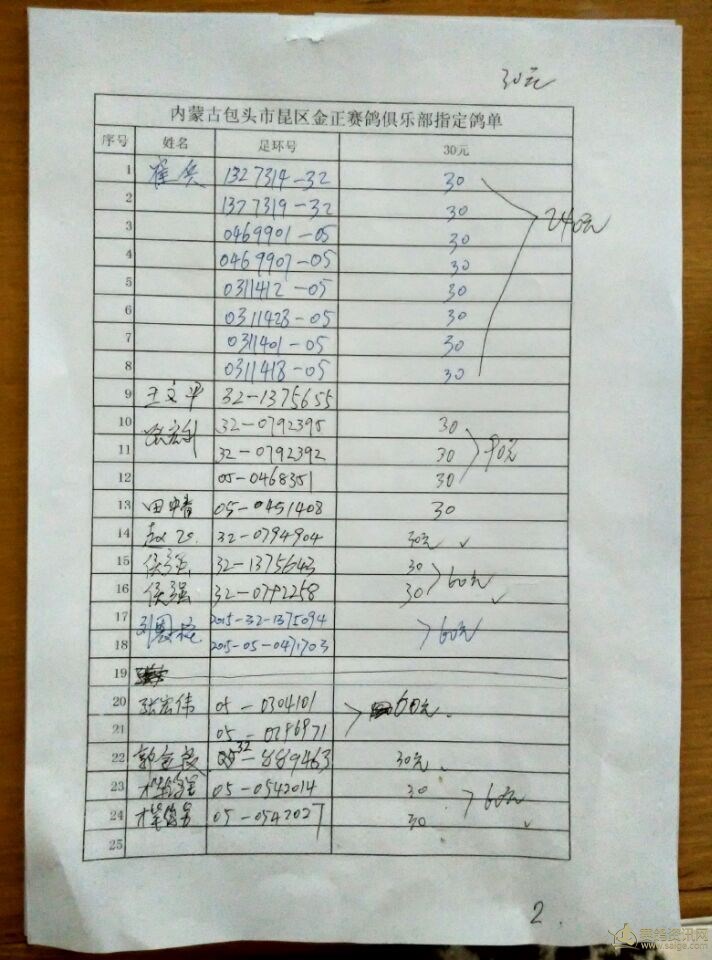 30元
内蒙古包头市昆区金正赛鸽俱乐部指定鸽单
序号 姓名 足环号 30元
1 1327314-32 30
2 1377319-32 30
3 0469901-05 30 240元
4 0469907-05 30
5 0311412-05 30
6 0311428-05 30
7 0311401-05 30
8 0311418-05 30
9 王文平 32-1375655
10 32-0792395 30
11 32-0792392 30 90元
12 05-0468351 30
13 05-0451408 30
14 32-0794904 30元 ✓
15 侯强 32-1375643 30 60元
16 侯强 32-0792258 30 ✓
17 2015-32-1375094 60元
18 2015-05-0471703
19
20 张宏伟 05-0304101 60元.
21 05-0296971
22 32-889463 30元.
23 05-0542014 30 60元
24 05-0542027 30 ✓
25
2.
赛鸽资讯网
www.saige.com